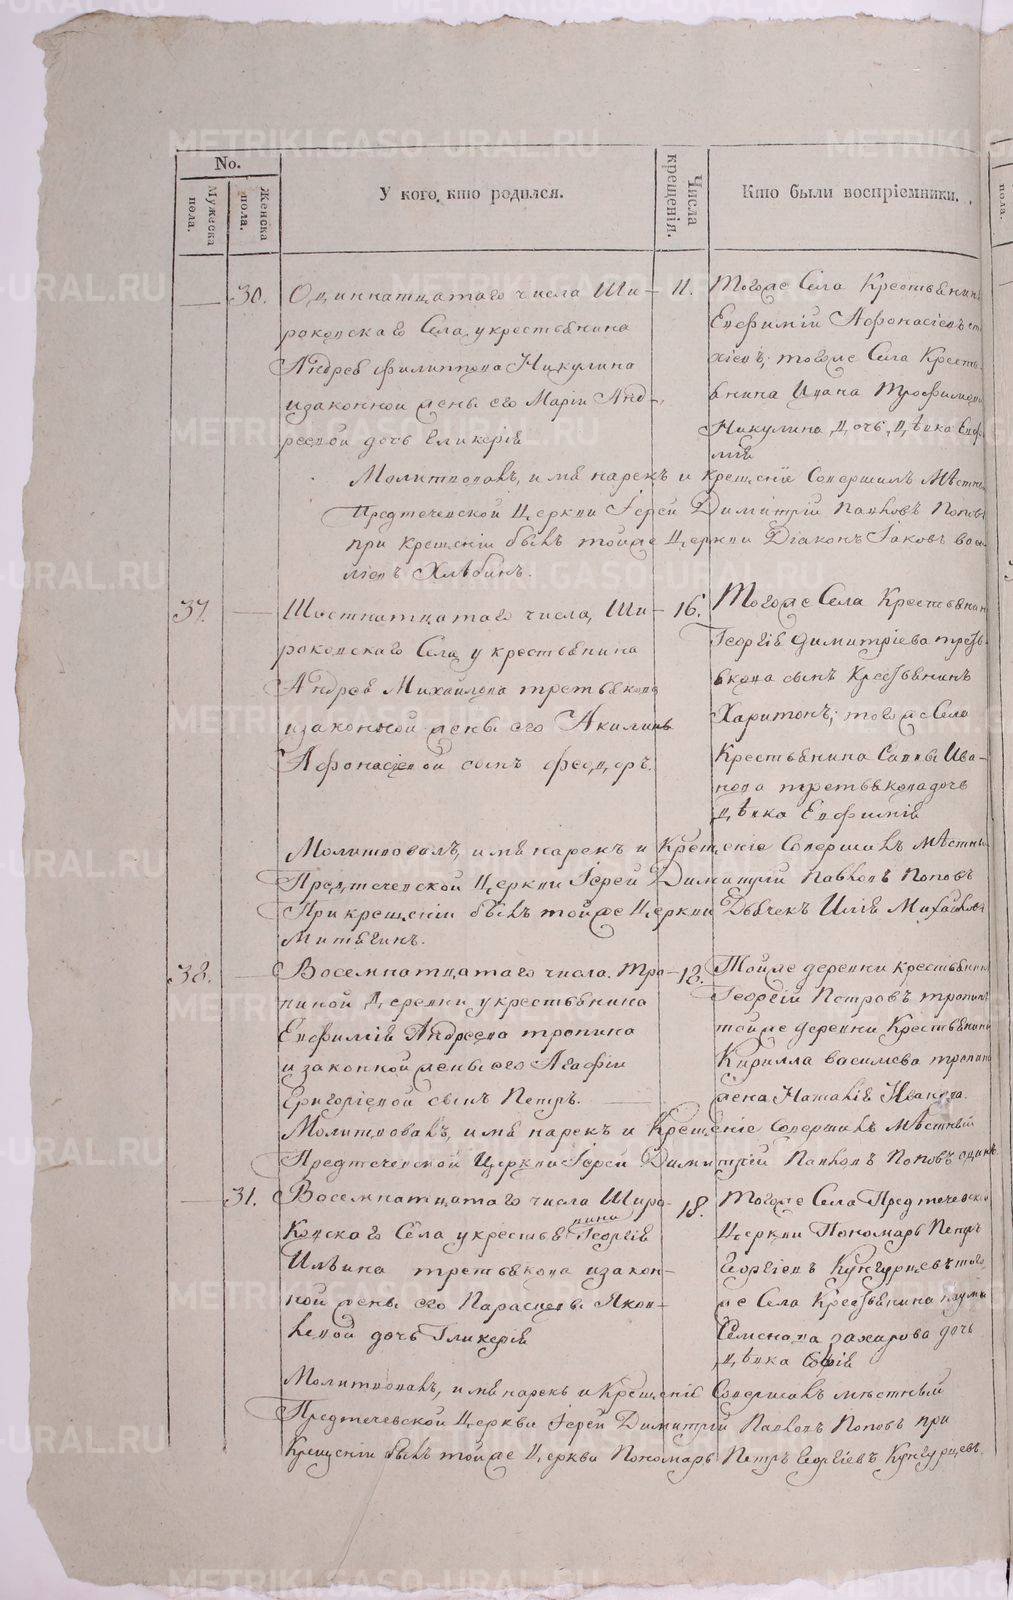 No.
Мужеска пола.
Женска пола.
У кого, кто родился.
Числа крещенія.
Кто были воспріемники.
30. Одиннатцатаго числа Ши-
роковскаго Села, у крестьянина
Андрея Филиппова Никулина
и законной жены его Маріи Анд-
реевой дочь Гликерія
11. Тогоже Села Крестьянинъ
Евфимій Афонасіевъ
тогоже Села Кресть-
янина Ивана Трофимова
Никулина дочь, дѣвка Евфи-
мія
Молитвовалъ, имя нарекъ и крещеніе Совершилъ Мѣстный
Предтечевской Церкви Іерей Димитрій Павловъ Поповъ
при крещеніи былъ тойже Церкви Діаконъ Іаковъ Васи-
ліевъ Хлѣбинъ.
37. Шестнатцатаго числа, Ши-
роковскаго Села, у крестьянина
Андрея Михайлова третьякова
и законной жены его Акилины
Афонасіевой сынъ Феодоръ.
16. Тогоже Села Крестьянина
Георгія Димитріева треть-
якова сынъ Крестьянинъ
Харитонъ; тогоже Села
Крестьянина Саввы Ива-
нова третьякова дочь
дѣвка Евфимія
Молитвовалъ, имя нарекъ и Крещеніе Совершилъ мѣстный
Предтечевской Церкви Іерей Димитрій Павловъ Поповъ
При крещеніи былъ тойже Церкви Дьячекъ Илія Михайловъ
Митягинъ.
38. Восемнатцатаго числа. Тро-
пиной Деревни у крестьянина
Евфимія Андреева тропина
и законной жены его Агафіи
Григоріевой сынъ Петръ.
18. Тойже деревни крестьянинъ
Георгій Петровъ тропинъ
тойже деревни Крестьянина
Кирилла васильева тропина
жена Наталія Иванова.
Молитвовалъ, имя нарекъ и Крещеніе Совершилъ Мѣстный
Предтечевской Церкви Іерей Димитрій Павловъ Поповъ одинъ
31. Восемнатцатаго числа Широ-
ковскаго Села у крестьянина Георгія
Ильина третьякова и закон-
ной жены его Параскевы Яков-
левой дочь Гликерія
18. Тогоже Села Предтечевской
Церкви Пономарь Петръ
Георгіевъ Кунгурцевъ того-
же Села Крестьянина наума
Семенова захарова дочь
дѣвка Софія
Молитвовалъ, имя нарекъ и Крещеніе Совершилъ мѣстный
Предтечевской Церкви Іерей Димитрій Павловъ Поповъ при
Крещеніи былъ тойже Церкви Пономарь Петръ Георгіевъ Кунгурцевъ.
METRIKI.GASO-URAL.RU